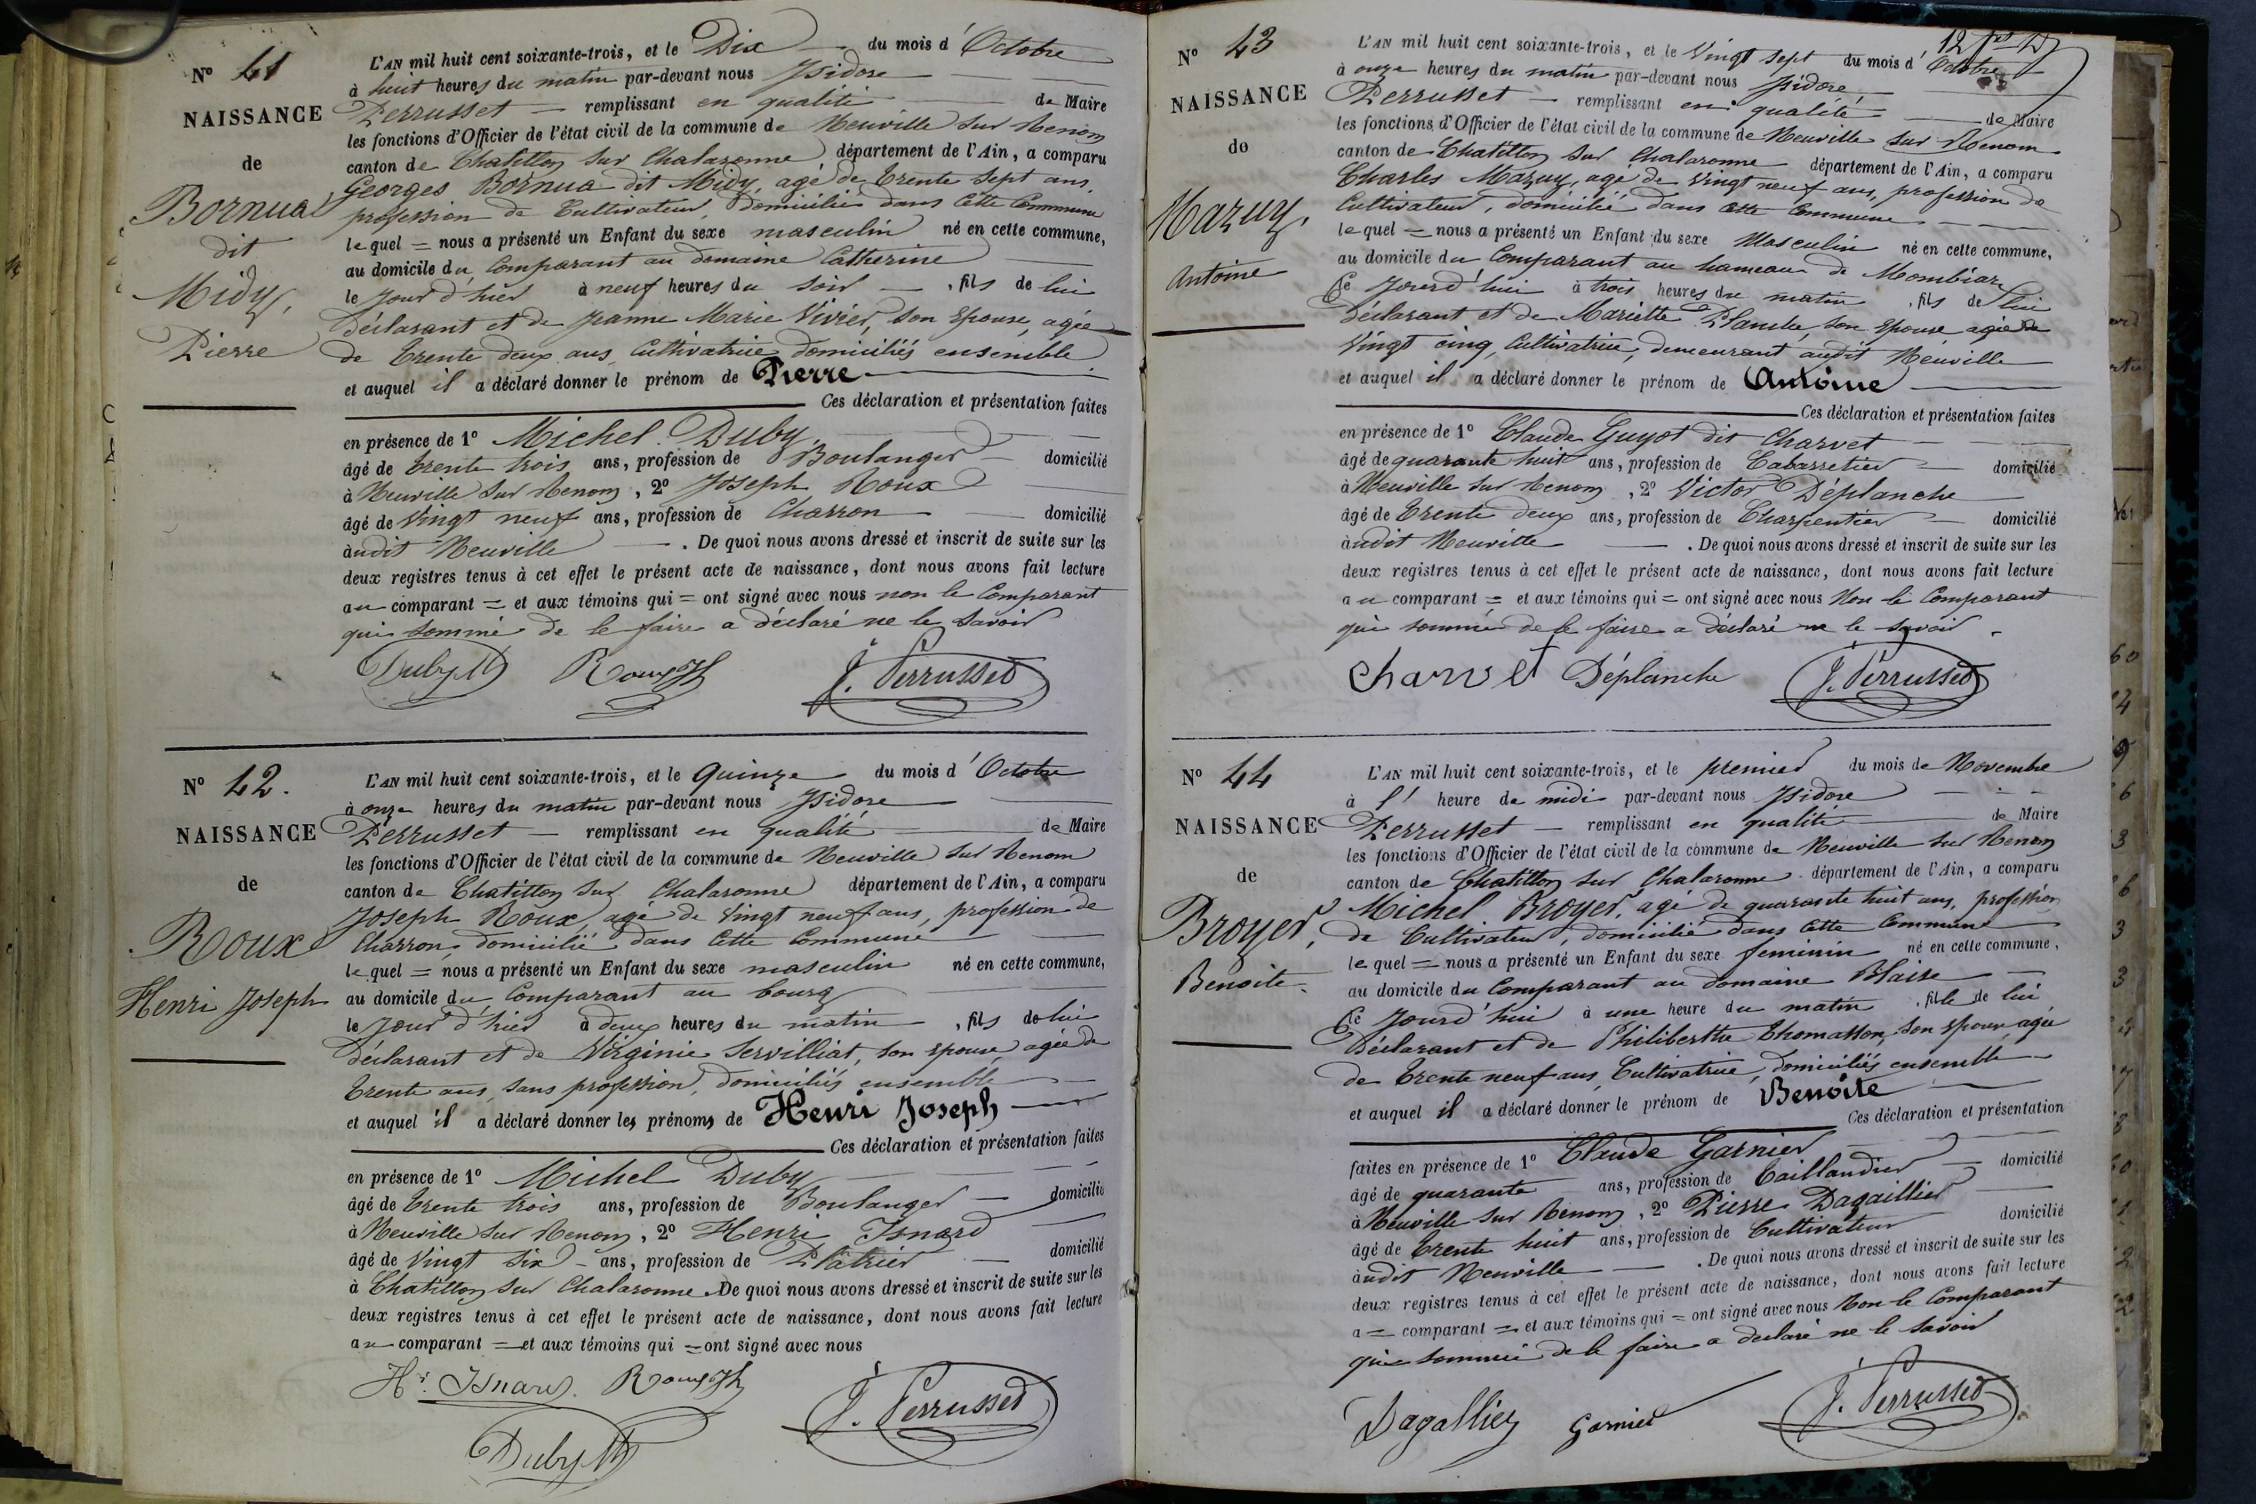 N° 41
NAISSANCE
de
Bornua
dit
Midy,
Pierre
L'AN mil huit cent soixante-trois, et le Dix du mois d'Octobre
à huit heures du matin par-devant nous Isidore
Perrusset — remplissant en qualité de Maire
les fonctions d'Officier de l'état civil de la commune de Neuville sur Renom
canton de Chatillon sur Chalaronne département de l'Ain, a comparu
Georges Bornua dit Midy, agé de trente sept ans,
profession de Cultivateur, domicilié dans cette Commune
lequel = nous a présenté un Enfant du sexe masculin né en cette commune,
au domicile du Comparant au domaine Catherine
le jour d'hier à neuf heures du soir — , fils de lui
déclarant et de Jeanne Marie Vivier, son épouse, agée
de trente deux ans, Cultivatrice, domiciliés ensemble
et auquel il a déclaré donner le prénom de Pierre
Ces déclaration et présentation faites
en présence de 1° Michel Duby,
âgé de trente trois ans, profession de Boulanger domicilié
à Neuville sur Renom, 2° Joseph Roux
âgé de vingt neuf ans, profession de Charron — domicilié
audit Neuville — . De quoi nous avons dressé et inscrit de suite sur les
deux registres tenus à cet effet le présent acte de naissance, dont nous avons fait lecture
au comparant = et aux témoins qui = ont signé avec nous non le Comparant
qui sommé de le faire a déclaré ne le savoir
Duby M Roux Jh J. Perrusset
N° 42.
NAISSANCE
de
Roux
Henri Joseph
L'AN mil huit cent soixante-trois, et le Quinze du mois d'Octobre
à onze heures du matin par-devant nous Isidore
Perrusset — remplissant en qualité de Maire
les fonctions d'Officier de l'état civil de la commune de Neuville sur Renom
canton de Chatillon sur Chalaronne département de l'Ain, a comparu
Joseph Roux, agé de vingt neuf ans, profession de
Charron, domicilié dans cette Commune
lequel = nous a présenté un Enfant du sexe masculin né en cette commune,
au domicile du Comparant au bourg
le jour d'hier à deux heures du matin — , fils de lui
déclarant et de Virginie Servilliat, son épouse, agée de
trente ans, sans profession, domiciliés ensemble
et auquel il a déclaré donner les prénoms de Henri Joseph
Ces déclaration et présentation faites
en présence de 1° Michel Duby
âgé de trente trois ans, profession de Boulanger — domicilié
à Neuville sur Renom, 2° Henri Isnard
âgé de vingt six — ans, profession de Plâtrier — domicilié
à Chatillon sur Chalaronne. De quoi nous avons dressé et inscrit de suite sur les
deux registres tenus à cet effet le présent acte de naissance, dont nous avons fait lecture
au comparant = et aux témoins qui = ont signé avec nous
Hi. Isnard. Roux Jh J. Perrusset
Duby M
N° 43
NAISSANCE
de
Mazuy,
Antoine
L'AN mil huit cent soixante-trois, et le Vingt sept du mois d'Octobre
à onze heures du matin par-devant nous Isidore
Perrusset — remplissant en qualité — de Maire
les fonctions d'Officier de l'état civil de la commune de Neuville sur Renom
canton de Chatillon sur Chalaronne département de l'Ain, a comparu
Charles Mazuy, agé de vingt neuf ans, profession de
Cultivateur, domicilié dans cette Commune
lequel = nous a présenté un Enfant du sexe Masculin né en cette commune,
au domicile du Comparant au hameau de
Ce jourd'hui à trois heures du matin , fils de lui
déclarant et de Mariette Planche, son épouse agée de
Vingt cinq, Cultivatrice, demeurant audit Neuville
et auquel il a déclaré donner le prénom de Antoine
Ces déclaration et présentation faites
en présence de 1° Claude Guyot dit Charvet
âgé de quarante huit ans, profession de Cabaretier — domicilié
à Neuville sur Renom, 2° Victor Déplanche
âgé de trente deux ans, profession de Charpentier — domicilié
audit Neuville — . De quoi nous avons dressé et inscrit de suite sur les
deux registres tenus à cet effet le présent acte de naissance, dont nous avons fait lecture
au comparant = et aux témoins qui = ont signé avec nous Non le Comparant
qui sommé de le faire a déclaré ne le savoir.
Charvet Déplanche J. Perrusset
N° 44
NAISSANCE
de
Broyer,
Benoite.
L'AN mil huit cent soixante-trois, et le premier du mois de Novembre
à l' heure de midi par-devant nous Isidore
Perrusset — remplissant en qualité de Maire
les fonctions d'Officier de l'état civil de la commune de Neuville sur Renom
canton de Chatillon sur Chalaronne département de l'Ain, a comparu
Michel Broyer, agé de quarante huit ans, profession
de Cultivateur, domicilié dans cette Commune
lequel = nous a présenté un Enfant du sexe feminin né en cette commune,
au domicile du Comparant au domaine Blaise
Ce jourd'hui à une heure du matin , fille de lui
déclarant et de Philiberthe Thomasson, son épouse, agée
de trente neuf ans, Cultivatrice, domiciliés ensemble
et auquel il a déclaré donner le prénom de Benoite
Ces déclaration et présentation
faites en présence de 1° Claude Garnier
âgé de quarante ans, profession de Taillandier — domicilié
à Neuville sur Renom, 2° Pierre Dagaillier
âgé de trente huit ans, profession de Cultivateur domicilié
audit Neuville — . De quoi nous avons dressé et inscrit de suite sur les
deux registres tenus à cet effet le présent acte de naissance, dont nous avons fait lecture
a= comparant = et aux témoins qui = ont signé avec nous Non le Comparant
qui sommé de le faire a declaré ne le savoir
Dagallier Garnier J. Perrusset